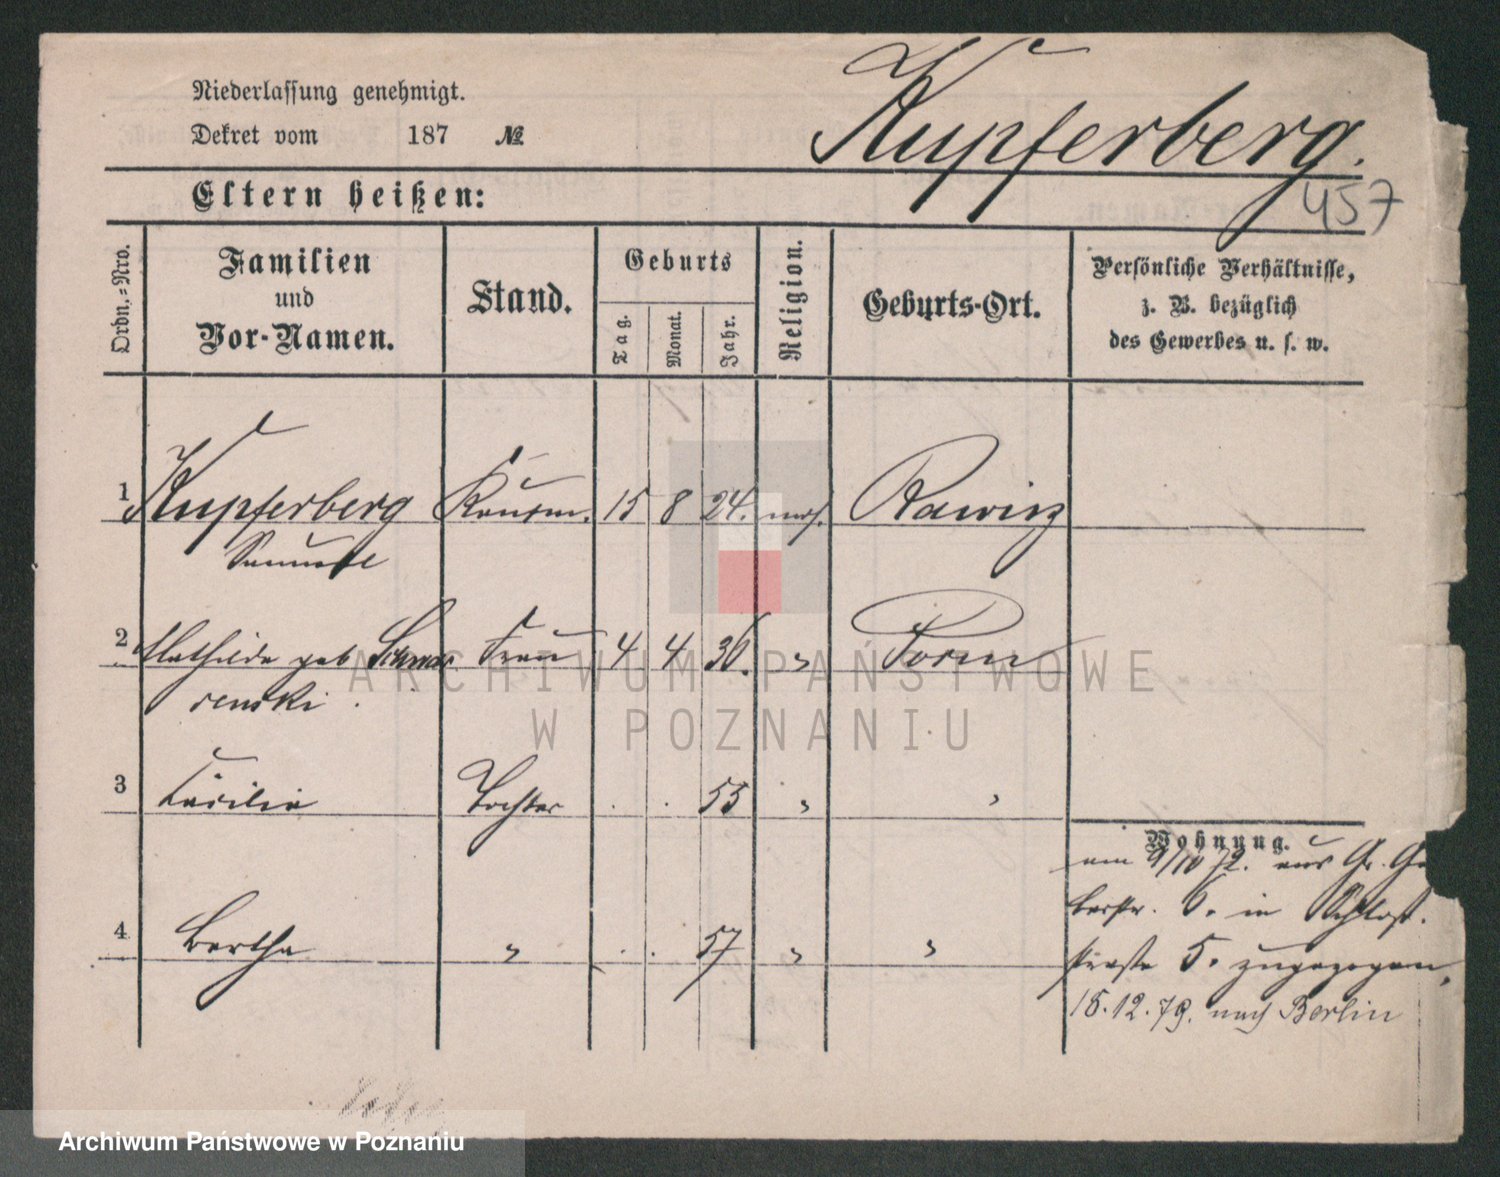 Niederlassung genehmigt.
Dekret vom 187 №
Kupferberg.
457
Eltern heißen:
Ordn.=Nro.
Familien
und
Vor-Namen.
Stand.
Geburts
Tag.
Monat.
Jahr.
Religion.
Geburts-Ort.
Persönliche Verhältnisse,
z. B. bezüglich
des Gewerbes u. s. w.
1 Kupferberg Kaufm. 15 8 24. mos. Rawicz
2 Mathilde geb Frau 4 4 36. " Posen
renski
3 Cäcilie Tochter . . 55 " "
Wohnung.
am 9/10 72. aus Gr. Ge
berstr. 6. in Schloß-
straße 5. zugezogen.
4 Bertha " . . 57 " "
15.12.79. nach Berlin
ARCHIWUM PAŃSTWOWE
W POZNANIU
Archiwum Państwowe w Poznaniu